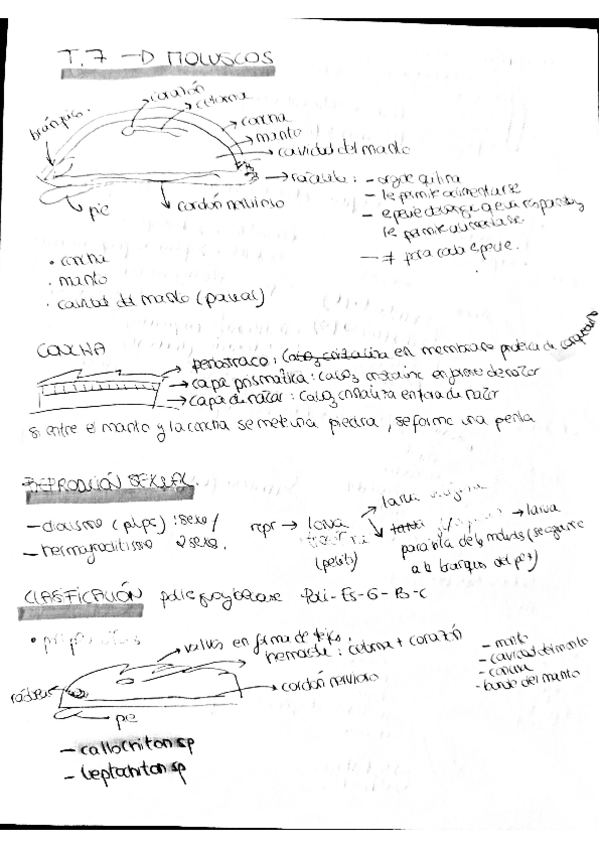 T.7 → MOLUSCOS
corazón
celoma
branquias.
concha
manto
cavidad del manto
→ rádula : - organo quitina
- le permite alimentarse
- especie de lengua que va raspando y
le permite alimentarse
- ≠ para cada especie.
pie
cordón nervioso
• concha
• manto
• cavidad del manto (paleal)
CONCHA
periostraco : CaCO₃ cristaliza en membrana proteica de conquiolina
capa prismática : CaCO₃ cristaliza en forma de calcita
capa de nácar : CaCO₃ cristaliza en forma de nácar
si entre el manto y la concha se mete una piedra, se forma una perla
REPRODUCIÓN SEXUAL.
- dioismo (pulpo) : 1 sexo /
- hermafroditismo 2 sexo.
repr → larva
(pelito)
larva
→ larva
parasita de los moluscos (se agarra
a la branquia del pez)
CLASIFICACIÓN Poli-Es-G-B-C
valvas en forma de tejas.
celoma + corazón
rádula
cordón nervioso
pie
- manto
- cavidad del manto
- concha
- borde del manto
- callochiton sp
- leptochiton sp